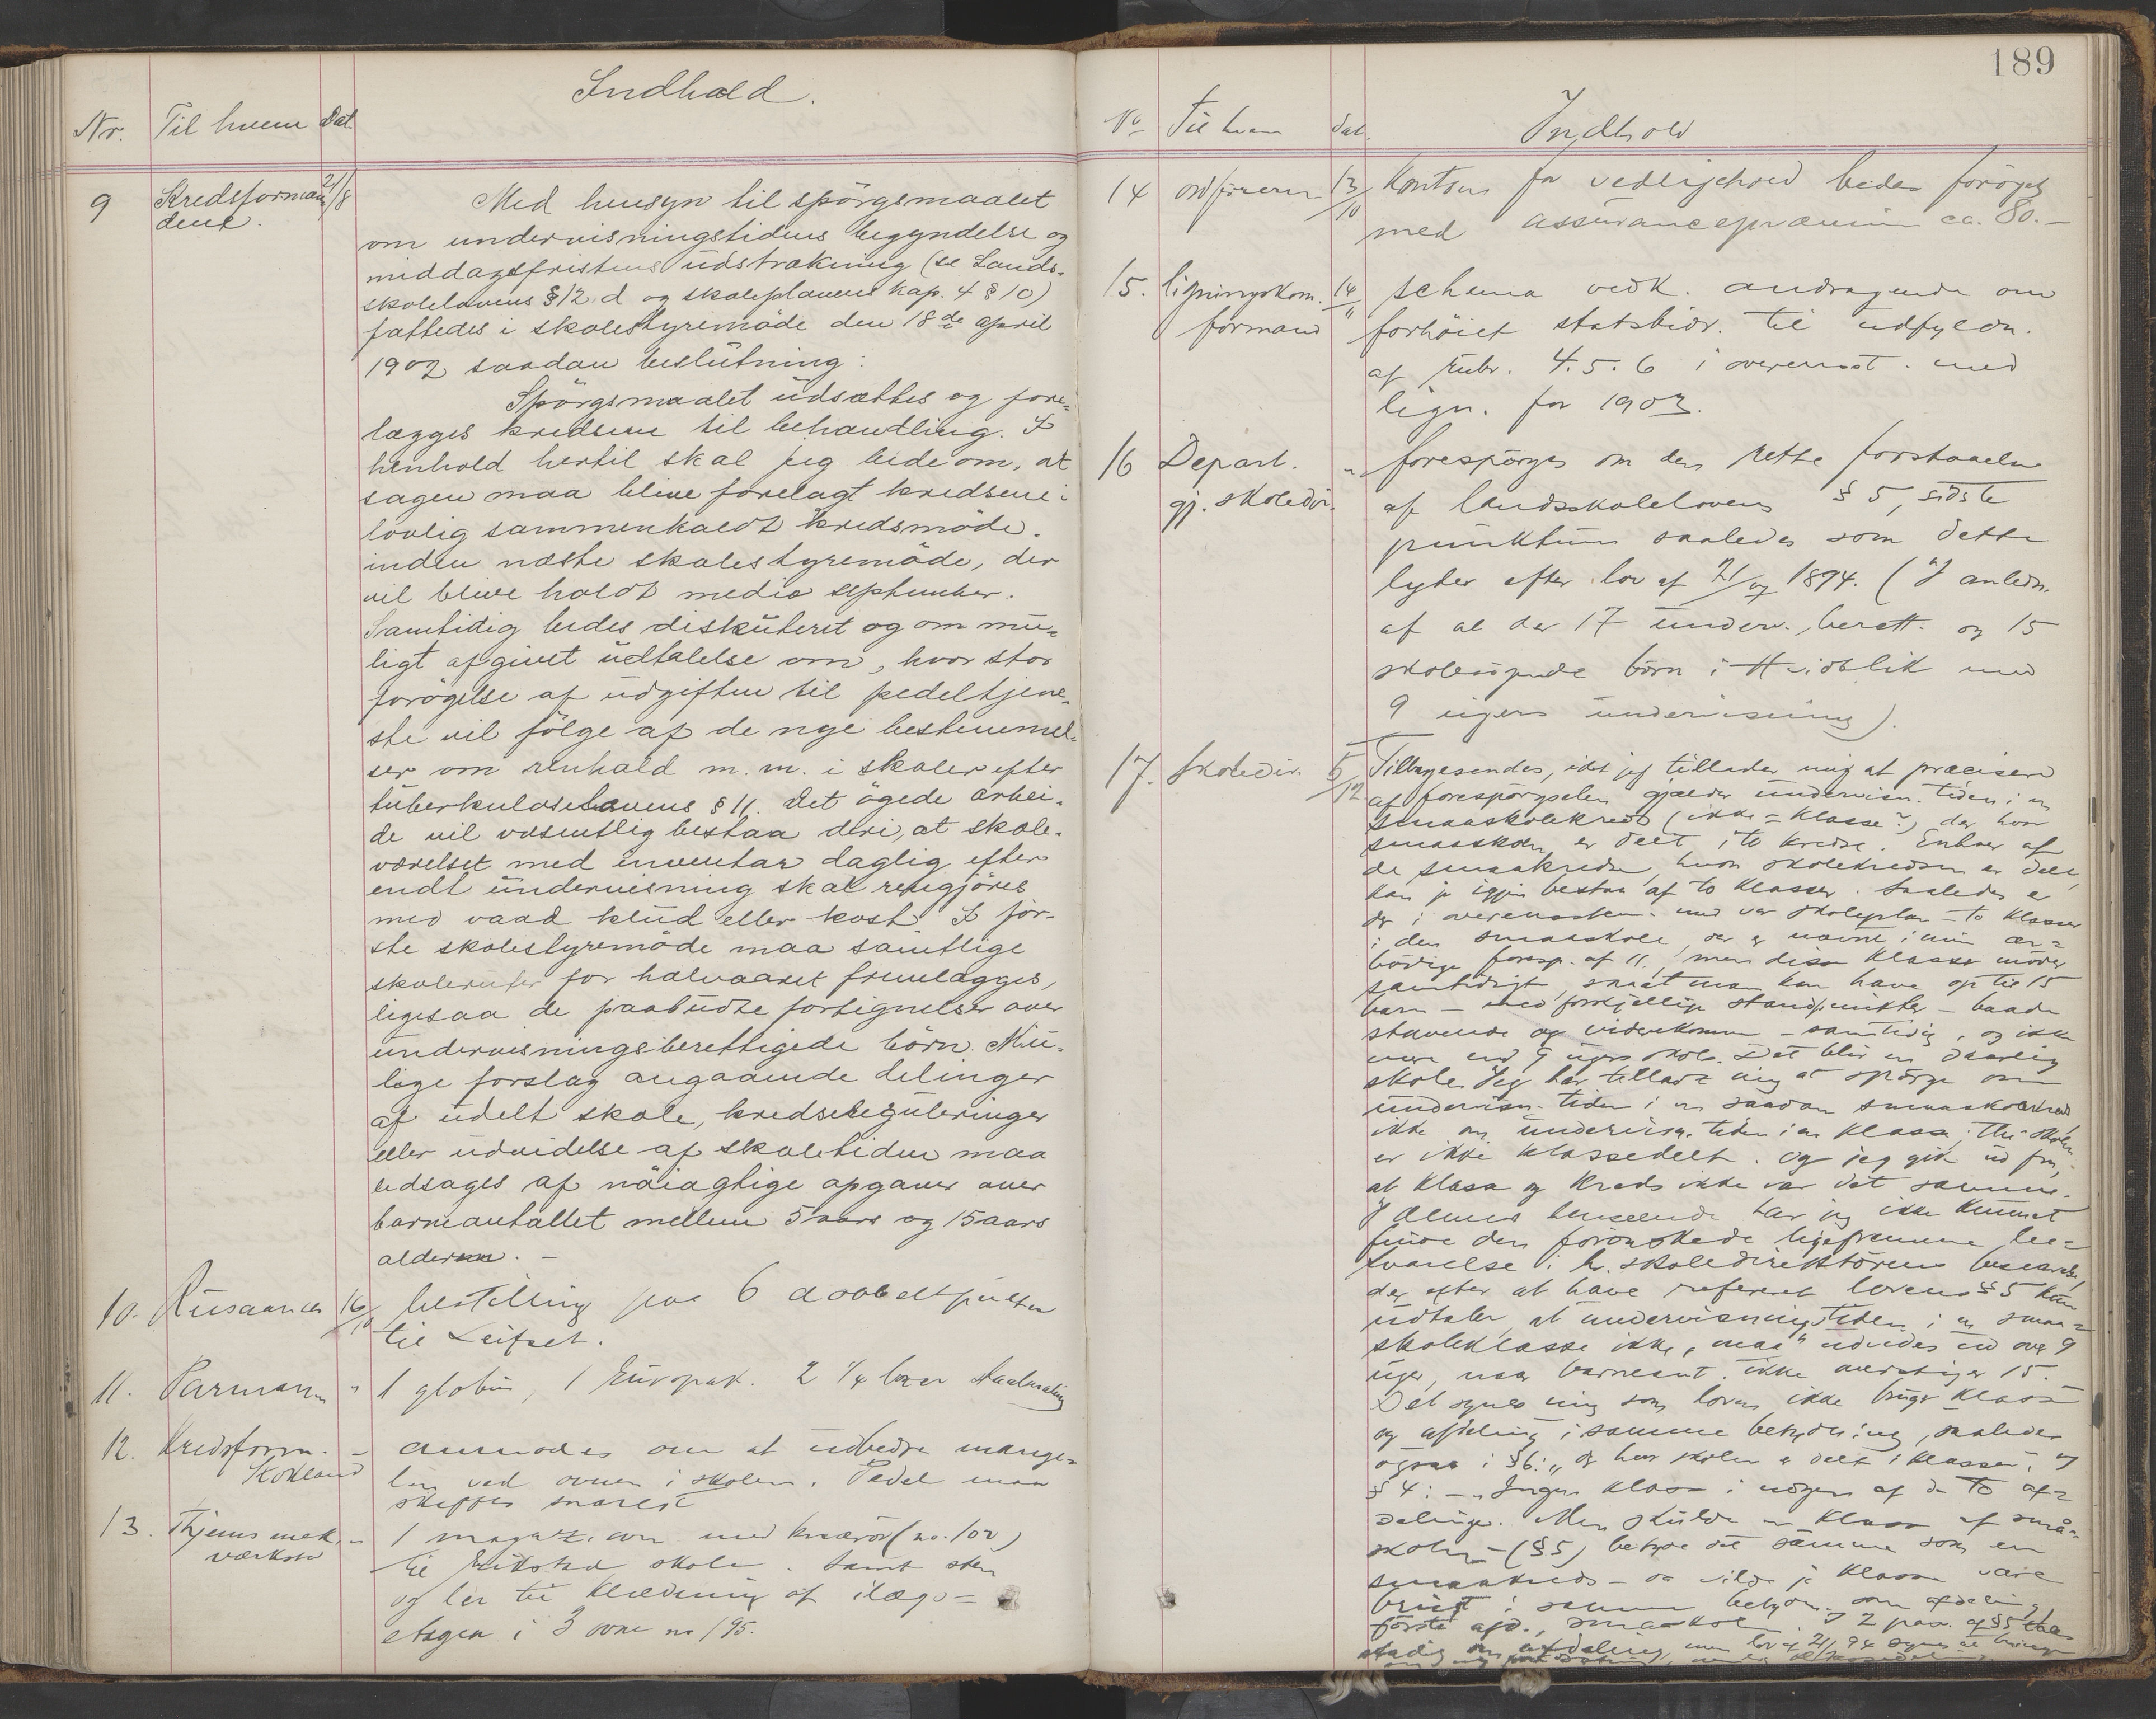 Indhold.
Nr. Til hvem Dat
9 Kredsformæn 21/8
dene.
Med hensyn til spörgsmaalet
om undervisningstidens begyndelse og
middagsfristens udstrækning (se Lands-
skolelovens § 12 d og skoleplanens kap. 4 § 10)
fattedes i skolestyremöde den 18de april
1902 saadan beslutning:
Spörgsmaalet udsættes og fore-
lægges kredsene til behandling. I
henhold hertil skal jeg bede om, at
sagen maa blive forelagt kredsene i
lovlig sammenkaldt kredsmöde.
inden næste skolestyremöde, der
vil blive holdt medio september.
Samtidig bedes diskuteret og om mu-
ligt afgivet udtalelse om, hvor stor
forögelse af udgiften til pedeltjene-
ste vil fölge af de nye bestemmel-
ser om renhold m.m. i skoler efter
tuberkuloselovens § 11. Det ögede arbei-
de vil væsentlig bestaa deri, at skole-
værelset med inventar daglig efter
endt undervisning skal rengjöres
med vaad klud eller kost. I för-
ste skolestyremöde maa samtlige
skoleruter for halvaaret fremlægges,
ligesaa de paabudte fortegnelser over
undervisningsberettigede börn. Mu-
lige forslag angaaende delinger
af udelt skole, kredsreguleringer
eller udvidelse af skoletiden maa
ledsages af nöiagtige opgaver over
barneantallet mellem 5 aars og 15 aars
alderen. -
10. Rusaanes 16/10 bestilling paa 6 dobbeltpulter
til Leifset.
11. Parmann " 1 globus, 1 Europak. 2 1/4
12. Kredsform. - anmodes om at udbedre mange-
Kokland
ler ved ovnen i skolen. Pedel maa
skaffes snarest
13. Thjems mek. "
værksted
1 magaz. ovn med knærör (no. 102)
til skole. Samt sten
og ler til klædning af ilægs-
etagen i 3 ovne no 195.
189
No Til hvem Dat. Indhold
14 ordföreren 13/10 Kontoen for vedligehold bedes foröget
med assurancepræmien ca. 80.-
15. ligningskom. 14/11 schema vedk. andragende om
formand forhöiet statsbidr. til udfyldn.
af rubr. 4. 5. 6 i overensst. med
lign. for 1903.
16 Depart. " forespörges om den rette forstaaelse
gj. skoledir. af landsskolelovens § 5, sidste
punktum saaledes som dette
lyder efter lov af 21/07 1894. (I anledn.
af at der 17 underv. berett. og 15
skolesögende börn i Hvidblik med
9 ugers undervisning).
17. Skoledir. 5/12 Tilbagesendes, idet jeg tillader mig at præcisere
at forespörgselen gjælder undervisn. tiden i en
smaaskolekreds (ikke = klasse?) der hvor
smaaskolen er delt i to kredse. Enhver af
de smaakredse, hvori skolekredsen er delt,
kan jo igjen bestaa af to klasser. Saaledes er
der i overensstem. med vor skoleplan - to klasser
i den smaaskole, der er nævnt i min ær-
bödige foresp. af 11., men disse klasser möder
samtidigt, saa at man kan have op til 15
barn - med forskjellige standpunkter - baade
stavende og viderekomne - samtidig, og ikke
mere end 9 ugers skole. Det blir en daarlig
skole. Jeg har tilladt mig at spörge om
undervisn. tiden i en saadan smaaskolekreds
ikke om undervisn. tiden i en klasse; thi skolen
er ikke klassedelt. og jeg gik ud fra,
at klasse og kreds ikke var det samme.
I denne henseende har jeg ikke kunnet
finde den forönskede ligefremme be-
svarelse i hr. skoledirektörens besvarelse,
der efter at have refereret lovens § 5 kun
udtaler, at undervisningstiden i en smaa-
skoleklasse ikke "maa" udvides ud over 9
uger, naar barneant. ikke overstiger 15.
Det synes mig som loven ikke bruger klasse
og afdeling i samme betydning, saaledes
ogsaa i § 6: "og hvor skolen er delt i klasser", og
§ 4: - "Ingen klasse i nogen af de to af-
delinger. Men skulde en klasse af små-
skolen - (§ 5) betyde det samme som en
smaakreds - saa vilde jo klasse være
brugt i samme betydn. som afdeling,
förste afd., smaaskolen. I 2 pas. af § 5
stadig om afdeling, men lov af 21/7 94 synes at bringe